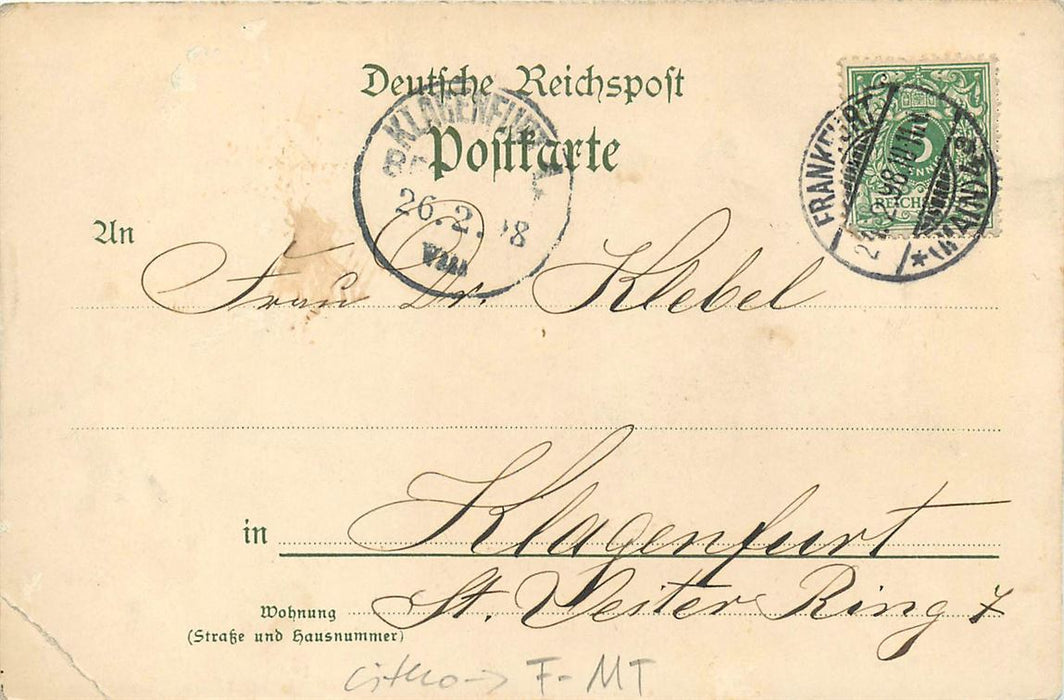 Deutsche Reichspost
Postkarte
KLAGENFURT
26.2. 98
FRANKFURT
(MAIN)
REICHS
An
Frau Dr. Klebel
in
Klagenfurt
St. Veiter Ring 7
Wohnung
(Straße und Hausnummer)
F-MT